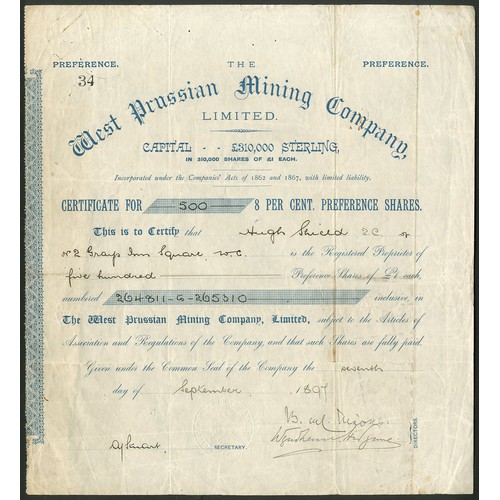 PREFERENCE. THE PREFERENCE.
34
West Prussian Mining Company,
LIMITED.
CAPITAL - - £310,000 STERLING,
IN 310,000 SHARES OF £1 EACH.
Incorporated under the Companies' Acts of 1862 and 1867, with limited liability.
CERTIFICATE FOR 500 8 PER CENT. PREFERENCE SHARES.
This is to Certify that Hugh Shield QC of
No 2 Grays Inn Square W.C. is the Registered Proprietor of
five hundred Preference Shares of £1 each,
numbered 264811-G-265310 inclusive, in
The West Prussian Mining Company, Limited, subject to the Articles of
Association and Regulations of the Company, and that such Shares are fully paid.
Given under the Common Seal of the Company the seventh
day of September 1897
SECRETARY.
DIRECTORS.